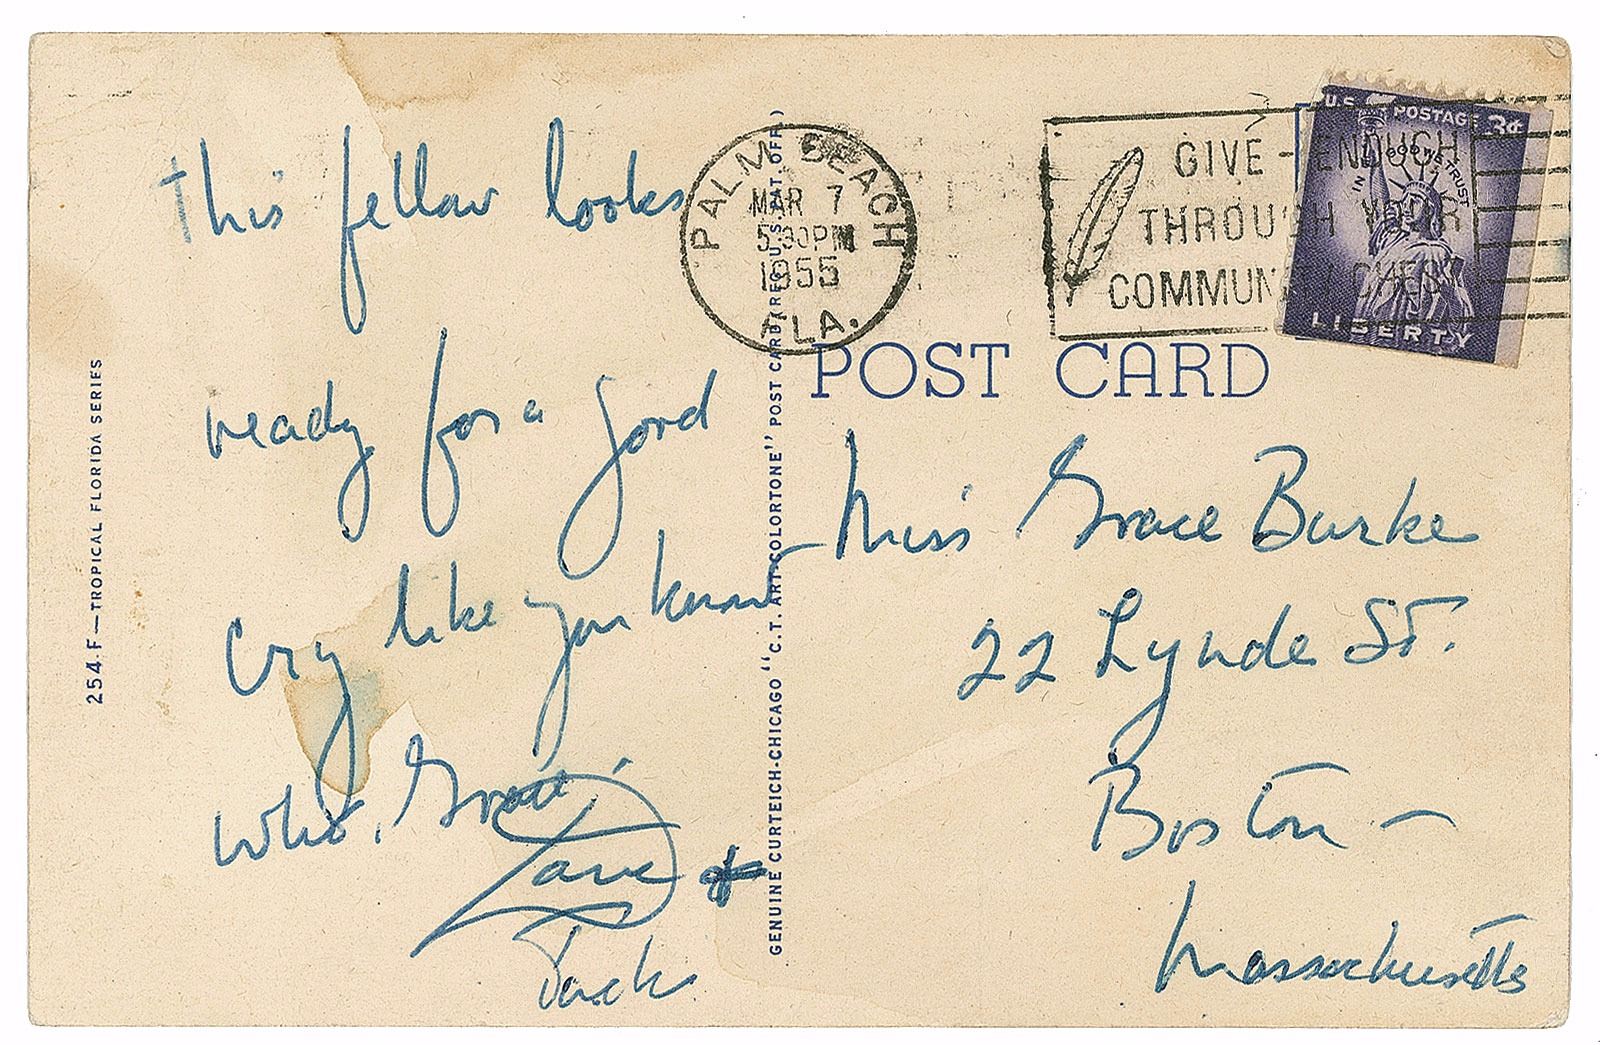 This fellow looks
ready for a good
cry like you know
who, Grace!
Dave &
Jack
254.F—TROPICAL FLORIDA SERIES
GENUINE CURTEICH-CHICAGO "C.T. ART-COLORTONE" POST CARD (REG. U.S. PAT. OFF.)
PALM BEACH
MAR 7
5:30PM
1955
FLA.
GIVE - ENOUGH
THROUGH YOUR
COMMUNITY CHEST
U.S. POSTAGE 3¢
IN GOD WE TRUST
LIBERTY
POST CARD
Miss Grace Burke
22 Lynde St.
Boston —
Massachusetts